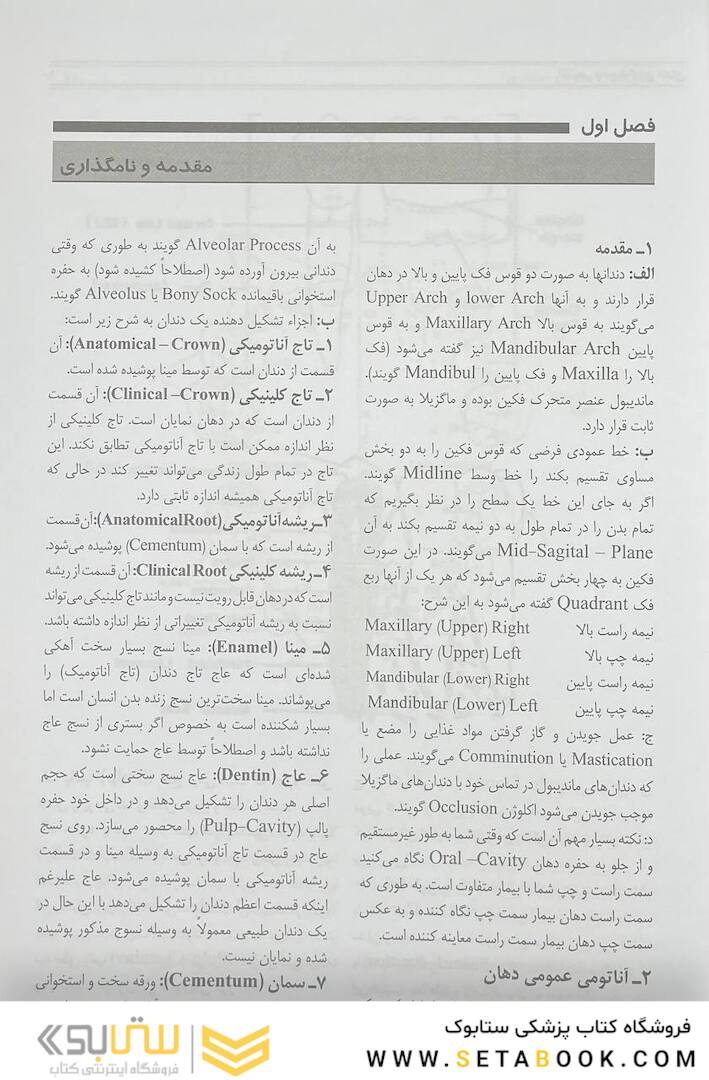 فصل اول
مقدمه و نامگذاری
۱ـ مقدمه
الف: دندانها به صورت دو قوس فک پایین و بالا در دهان
قرار دارند و به آنها lower Arch و Upper Arch
می‌گویند به قوس بالا Maxillary Arch و به قوس
پایین Mandibular Arch نیز گفته می‌شود (فک
بالا را Maxilla و فک پایین را Mandibul گویند).
ماندیبول عنصر متحرک فکین بوده و ماگزیلا به صورت
ثابت قرار دارد.
ب: خط عمودی فرضی که قوس فکین را به دو بخش
مساوی تقسیم بکند را خط وسط Midline گویند.
اگر به جای این خط یک سطح را در نظر بگیریم که
تمام بدن را در تمام طول به دو نیمه تقسیم بکند به آن
Mid–Sagital – Plane می‌گویند. در این صورت
فکین به چهار بخش تقسیم می‌شود که هر یک از آنها ربع
فک Quadrant گفته می‌شود به این شرح:
نیمه راست بالا Maxillary (Upper) Right
نیمه چپ بالا Maxillary (Upper) Left
نیمه راست پایین Mandibular (Lower) Right
نیمه چپ پایین Mandibular (Lower) Left
ج: عمل جویدن و گاز گرفتن مواد غذایی را مضع یا
Mastication یا Comminution می‌گویند. عملی را
که دندان‌های ماندیبول در تماس خود با دندان‌های ماگزیلا
موجب جویدن می‌شود اکلوژن Occlusion گویند.
د: نکته بسیار مهم آن است که وقتی شما به طور غیرمستقیم
و از جلو به حفره دهان Oral –Cavity نگاه می‌کنید
سمت راست و چپ شما با بیمار متفاوت است. به طوری که
سمت راست دهان بیمار سمت چپ نگاه کننده و به عکس
سمت چپ دهان بیمار سمت راست معاینه کننده است.
۲ـ آناتومی عمومی دهان
به آن Alveolar Process گویند به طوری که وقتی
دندانی بیرون آورده شود (اصطلاحاً کشیده شود) به حفره
استخوانی باقیمانده Bony Sock یا Alveolus گویند.
ب: اجزاء تشکیل دهنده یک دندان به شرح زیر است:
۱ـ تاج آناتومیکی (Anatomical – Crown): آن
قسمت از دندان است که توسط مینا پوشیده شده است.
۲ـ تاج کلینیکی (Clinical –Crown): آن قسمت
از دندان است که در دهان نمایان است. تاج کلینیکی از
نظر اندازه ممکن است با تاج آناتومیکی تطابق نکند. این
تاج در تمام طول زندگی می‌تواند تغییر کند در حالی که
تاج آناتومیکی همیشه اندازه ثابتی دارد.
۳ـ ریشه آناتومیکی (Anatomical Root): آن قسمت
از ریشه است که با سمان (Cementum) پوشیده می‌شود.
۴ـ ریشه کلینیکی Clinical Root: آن قسمت از ریشه
است که در دهان قابل رویت نیست و مانند تاج کلینیکی می‌تواند
نسبت به ریشه آناتومیکی تغییراتی از نظر اندازه داشته باشد.
۵ـ مینا (Enamel): مینا نسج بسیار سخت آهکی
شده‌ای است که عاج تاج دندان (تاج آناتومیک) را
می‌پوشاند. مینا سخت‌ترین نسج زنده بدن انسان است اما
بسیار شکننده است به خصوص اگر بستری از نسج عاج
نداشته باشد و اصطلاحاً توسط عاج حمایت نشود.
۶ـ عاج (Dentin): عاج نسج سختی است که حجم
اصلی هر دندان را تشکیل می‌دهد و در داخل خود حفره
پالپ (Pulp–Cavity) را محصور می‌سازد. روی نسج
عاج در قسمت تاج آناتومیکی به وسیله مینا و در قسمت
ریشه آناتومیکی با سمان پوشیده می‌شود. عاج علیرغم
اینکه قسمت اعظم دندان را تشکیل می‌دهد با این حال در
یک دندان طبیعی معمولاً به وسیله نسوج مذکور پوشیده
شده و نمایان نیست.
۷ـ سمان (Cementum): ورقه سخت و استخوانی
فروشگاه کتاب پزشکی ستابوک
WWW.SETABOOK.COM
ستابوک
فروشگاه اینترنتی کتاب